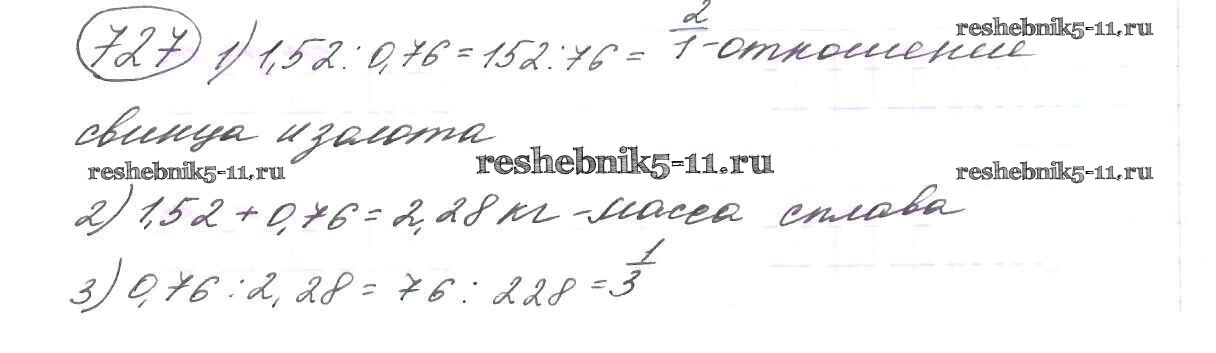 727 1) 1,52 : 0,76 = 152 : 76 = 2/1 - отношение
reshebnik5-11.ru
свинца и золота
reshebnik5-11.ru reshebnik5-11.ru reshebnik5-11.ru
2) 1,52 + 0,76 = 2,28 кг - масса сплава
3) 0,76 : 2,28 = 76 : 228 = 1/3